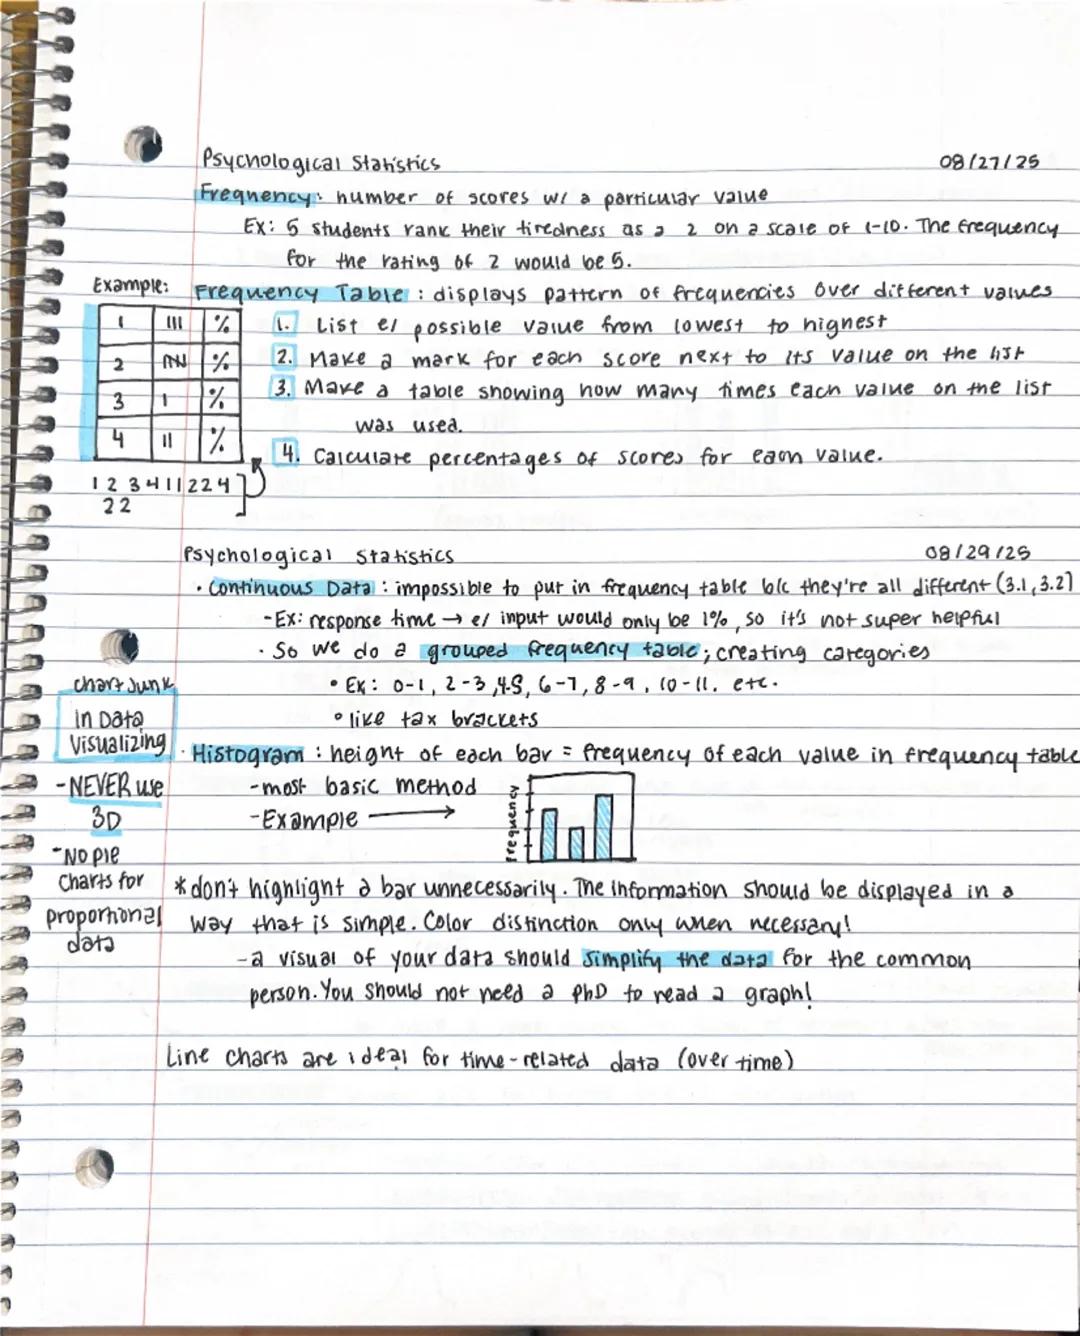 Psychological Statistics 08/27/25
Frequency: number of scores w/ a particular value
Ex: 5 students rank their tiredness as a 2 on a scale of 1-10. The frequency
for the rating of 2 would be 5.
Example:
1 III %
2 %
3 I %
4 II %
1 2 3 4 1 1 2 2 4
2 2
Frequency Table: displays pattern of frequencies over different values
1. List e/ possible value from lowest to highest
2. Make a mark for each score next to its value on the list
3. Make a table showing how many times each value on the list
was used.
4. Calculate percentages of scores for each value.
Psychological Statistics 08/29/25
· Continuous Data: impossible to put in frequency table b/c they're all different (3.1, 3.2)
- Ex: response time → e/ input would only be 1%, so it's not super helpful
· So we do a grouped frequency table; creating categories
• Ex: 0-1, 2-3, 4-5, 6-7, 8-9, 10-11. etc.
• like tax brackets
chart Junk
in Data
Visualizing
- NEVER use
3D
- No pie
charts for
proportional
data
· Histogram: height of each bar = frequency of each value in frequency table
- most basic method
- Example →
frequency
* don't highlight a bar unnecessarily. The information should be displayed in a
way that is simple. Color distinction only when necessary!
- a visual of your data should simplify the data for the common
person. You should not need a PhD to read a graph!
Line charts are ideal for time-related data (over time)